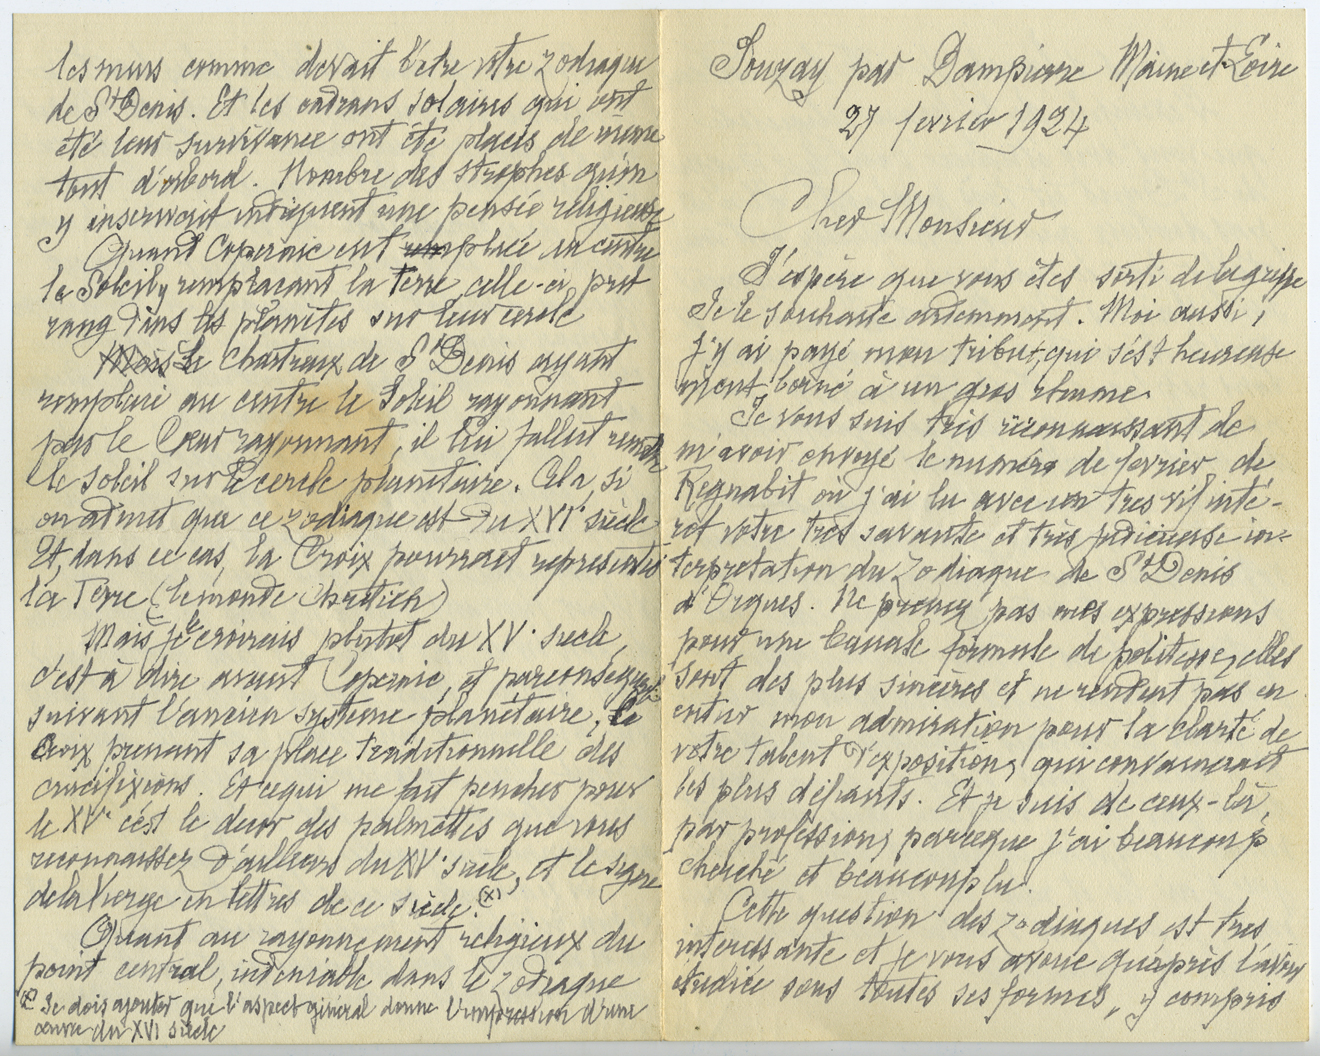 Souzay par Dampierre Maine et Loire
27 fevrier 1924
Cher Monsieur
J'espère que vous êtes sorti de la grippe
Je le souhaite ardemment. Moi aussi,
j'y ai payé mon tribut, qui s'est heureuse
ment borné à un gros rhume.
Je vous suis très reconnaissant de
m'avoir envoyé le numéro de fevrier de
Regnabit où j'ai lu avec un tres vif inté-
rêt votre très savante et très judicieuse in-
terprétation du Zodiaque de St Denis
d'Orques. Ne prenez pas mes expressions
pour une banale formule de politesse, elles
sont des plus sincères et ne rendent pas en
entier mon admiration pour la clarté de
votre talent d'exposition, qui convaincrait
les plus défiants. Et je suis de ceux-là,
par profession, parceque j'ai beaucoup
cherché et beaucoup lu.
Cette question des zodiaques est très
interessante et je vous avoue qu'après l'avoir
étudiée sous toutes ses formes, y compris
les murs comme devait l'être votre zodiaque
de St Denis. Et les cadrans solaires qui ont
été leur survivance ont été placés de même
tout d'abord. Nombre des strophes qu'on
y inscrivait indiquent une pensée religieuse
Quand Copernic eut placé au centre
le Soleil, y remplacant la Terre, celle-ci prit
rang dans les planètes sur leur cercle
Le Chartreux de St Denis ayant
remplacé au centre le Soleil rayonnant
par le Cœur rayonnant, il lui fallut remettre
le soleil sur le cercle planétaire. Cela, si
on admet que ce zodiaque est du XVIe siècle
Et, dans ce cas, la Croix pourrait representer
la Terre (le monde chrétien)
Mais je le croirais plutot du XVe siecle,
c'est à dire avant Copernic, et par conséquent
suivant l'ancien système planétaire, la
Croix prenant sa place traditionnelle des
crucifixions. Et ce qui me fait pencher pour
le XVe c'est le decor des palmettes que vous
reconnaissez d'ailleurs du XVe siècle, et le signe
de la Vierge en lettres de ce siècle. (X)
Quant au rayonnement religieux du
point central, indéniable dans le zodiaque
(X) Je dois ajouter que l'aspect général donne l'impression d'une
œuvre du XVI siècle